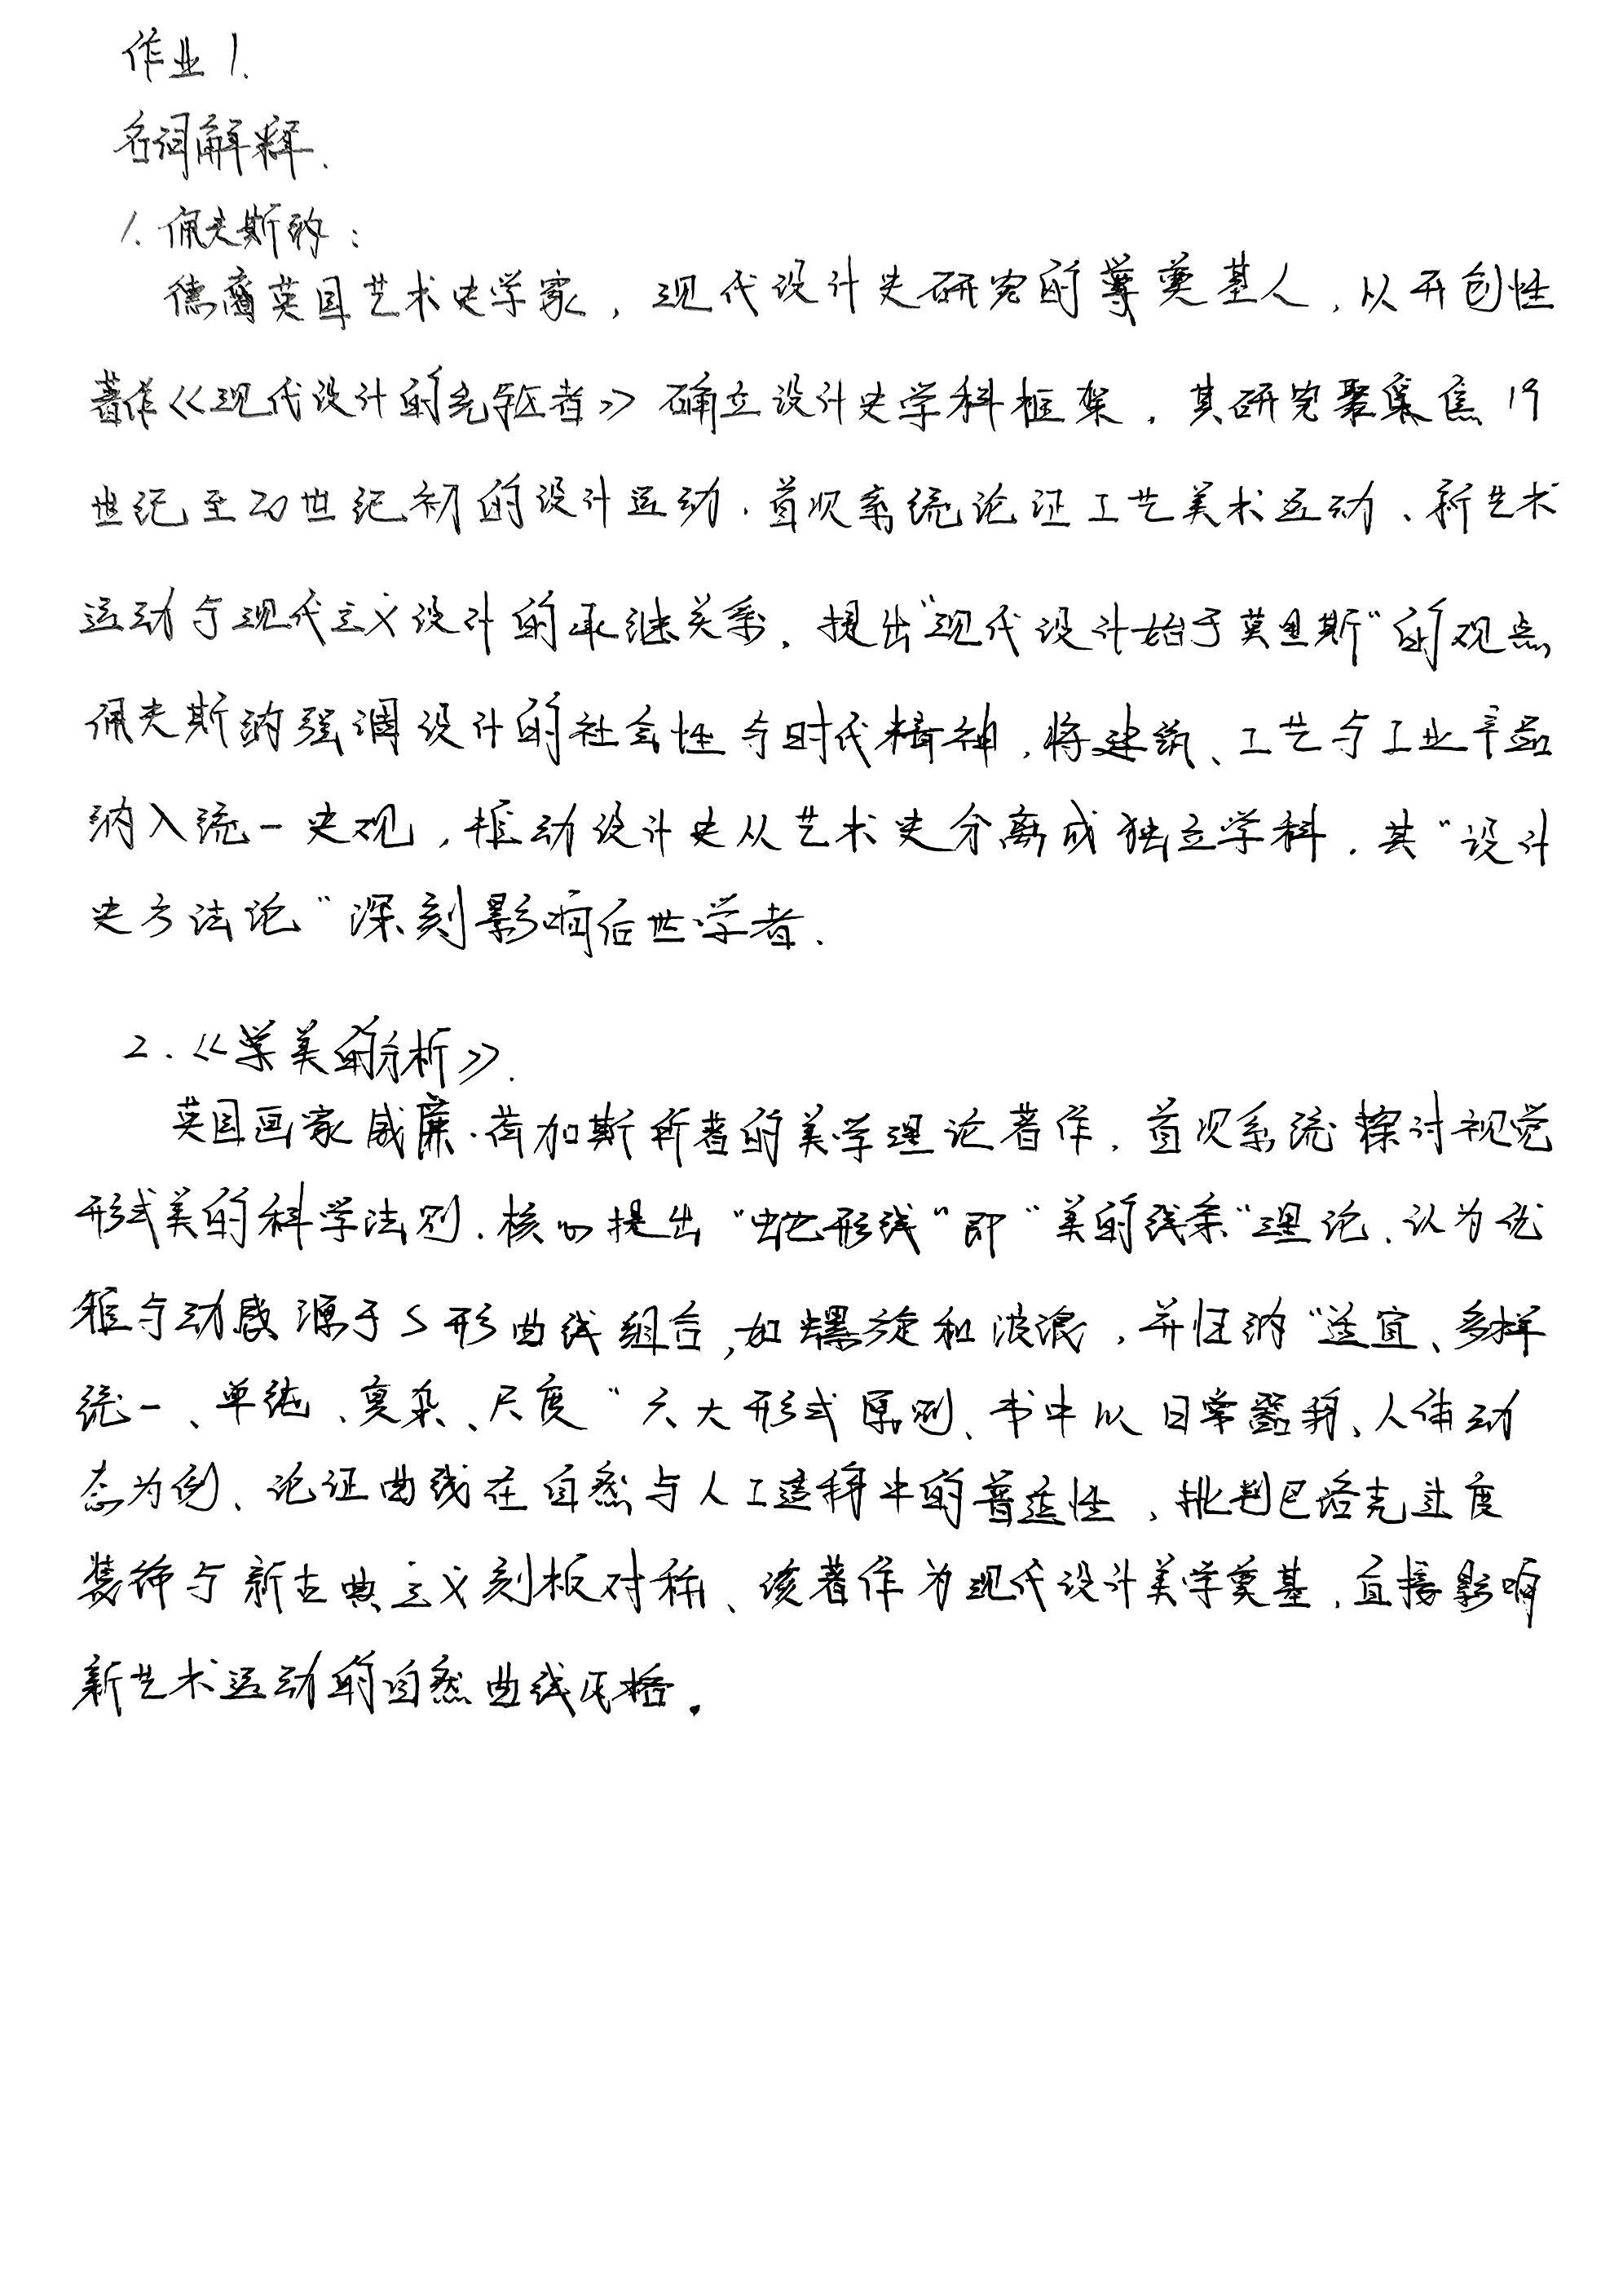 作业1.
名词解释.
1. 佩夫斯纳:
德裔英国艺术史学家,现代设计史研究的奠基人,以开创性
著作《现代设计的先驱者》确立设计史学科框架.其研究聚焦19
世纪至20世纪初的设计运动.首次系统论证工艺美术运动、新艺术
运动与现代主义设计的承继关系.提出“现代设计始于莫里斯”的观点
佩夫斯纳强调设计的社会性与时代精神,将建筑、工艺与工业产品
纳入统一史观,推动设计史从艺术史分离成独立学科.其“设计
史方法论”深刻影响后世学者.
2.《美的分析》.
英国画家威廉·荷加斯所著的美学理论著作.首次系统探讨视觉
形式美的科学法则.核心提出“蛇形线”即“美的线条”理论、认为优
雅与动感源于S形曲线组合,如螺旋和波浪,并归纳“适宜、多样
统一、单纯、复杂、尺度”六大形式原则、书中以日常器物、人体动
态为例、论证曲线在自然与人工造物中的普适性,批判巴洛克过度
装饰与新古典主义刻板对称、该著作为现代设计美学奠基,直接影响
新艺术运动的自然曲线风格.